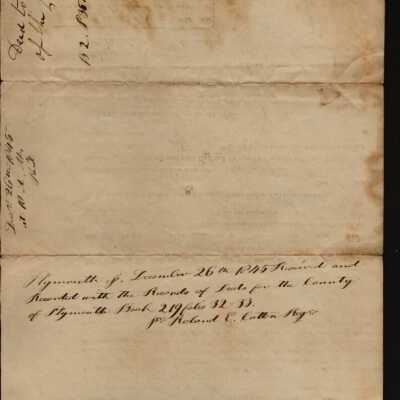 Deed to
of
B2. P.
Decr 26th 1845
at 10
Plymouth ss. December 26th 1845 Received and
Recorded with the Records of Deeds for the County
of Plymouth Book 219 folio 32-33.
pr Roland E. Cotton Regr